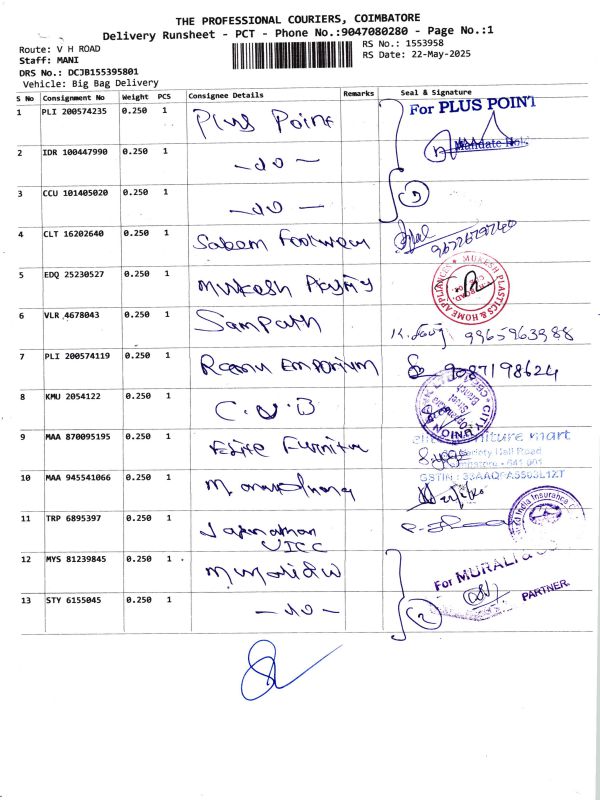 THE PROFESSIONAL COURIERS, COIMBATORE
Delivery Runsheet - PCT - Phone No.:9047080280 - Page No.:1
Route: V H ROAD
RS No.: 1553958
Staff: MANI
RS Date: 22-May-2025
DRS No.: DCJB155395801
Vehicle: Big Bag Delivery
S No Consignment No Weight PCS Consignee Details Remarks Seal & Signature
1 PLI 200574235 0.250 1 Plus Point For PLUS POINT
2 IDR 100447990 0.250 1 -do-
3 CCU 101405020 0.250 1 -do- 3
4 CLT 16202640 0.250 1 Footwear
5 EDQ 25230527 0.250 1 Mukesh MUKESH PLASTICS & HOME APPLIANCES
6 VLR 4678043 0.250 1 Sampath 9965963988
7 PLI 200574119 0.250 1 Emporium 9087198624
8 KMU 2054122 0.250 1 C.U.B CITY UNION
9 MAA 870095195 0.250 1 Elite Furnitur
641 001
10 MAA 945541066 0.250 1 M.
11 TRP 6895397 0.250 1 UICC India Insurance
12 MYS 81239845 0.250 1 For MURALI & CO
PARTNER.
13 STY 6155045 0.250 1 -do- 2